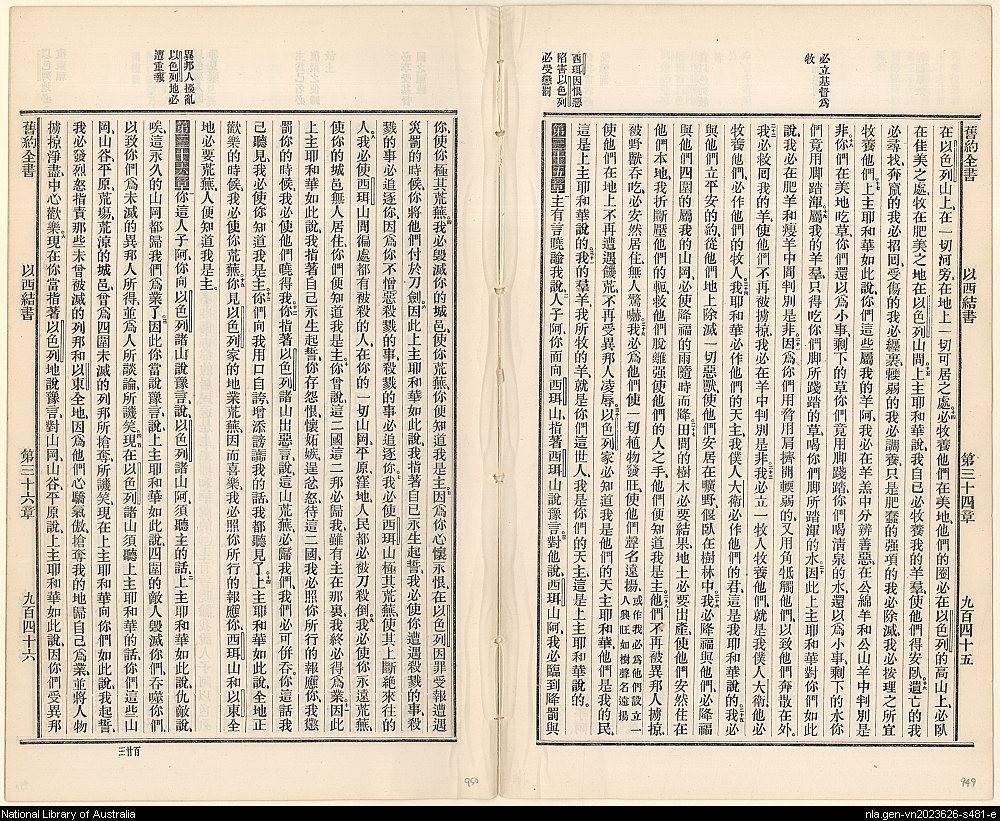 必立基督爲
牧
西珥因恨惡
陷害以色列
必受懲罰
舊約全書 以西結書 第三十四章 九百四十五
在以色列山上在一切河旁在地上一切可居之處必牧養他們在美地他們的圈必在以色列的高山上必臥
在佳美之處牧在肥美之地在以色列山間上主耶和華說我自己必牧養我的羊羣使他們得安臥遺亡的我
必尋找奔竄的我必招回受傷的我必纏裹輭弱的我必調養只是肥壅的強項的我必除滅我必按理之所宜
牧養他們上主耶和華如此說你們這些屬我的羊阿我必在羊羔中分辨善惡在公綿羊和公山羊中判別是
非你們在美地吃草你們還以爲小事剩下的草你們竟用脚踐踏你們喝清泉的水還以爲小事剩下的水你
們竟用脚踏渾屬我的羊羣只得吃你們脚所踐踏的草喝你們脚所踏渾的水因此上主耶和華對你們如此
說我必在肥羊和瘦羊中間判別是非因爲你們用脅用肩擠開輭弱的又用角牴觸他們以致他們奔散在外
我必救回我的羊使他們不再被擄掠我必在羊中判別是非我必立一牧人牧養他們就是我僕人大衛他必
牧養他們必作他們的牧人我耶和華必作他們的天主我僕人大衛必作他們的君這是我耶和華說的我必
與他們立平安的約從他們地上除滅一切惡獸使他們安居在曠野偃臥在樹林中我必降福與他們必降福
與他們四圍的屬我的山岡必使降福的雨隨時而降田間的樹木必要結果地土必要出產使他們安然住在
他們本地我折斷壓他們的軛救他們脫離強使他們的人之手他們便知道我是主他們不再被異邦人擄掠
被野獸吞吃必安然居住無人驚嚇我必爲他們使一切植物發旺使他們聲名遠揚或作我必爲他們設立一人興旺如樹聲名遠揚
使他們在地上不再遭遇饑荒不再受異邦人凌辱以色列家必知道我是他們的天主耶和華他們是我的民
這是上主耶和華說的我的羊羣我所牧的羊就是你們這世人我是你們的天主這是上主耶和華說的
第三十五章主有言曉諭我說人子阿你面向西珥山指著西珥山說豫言對他說西珥山阿我必臨到降罰與
異邦人擾亂
以色列地必
遭重報
你使你極其荒蕪我必毀滅你的城邑使你荒蕪你便知道我是主因爲你心懷永恨在以色列因罪受報遭遇
災罰的時候你將他們付於刀劍因此上主耶和華如此說我指著自己永生起誓我必使你遭遇殺戮的事殺
戮的事必追逐你因爲你不憎惡殺戮的事殺戮的事必追逐你我必使西珥山極其荒蕪使其上斷絶來往的
人我必使西珥山間徧處都有被殺的人在你的一切山岡平原窪地人民都必被刀殺倒我必使你永遠荒蕪
使你的城邑無人居住你們便知道我是主你曾說這二國這二邦必歸我雖有主在那裏我終必得爲業因此
上主耶和華如此說我指著自己永生起誓你存怨恨懷妬嫉逞忿怒待這二國我必照你所行的報應你我懲
罰你的時候我必使他們曉得我你指著以色列諸山出惡言說這山荒蕪必歸我們我們必可併吞你這話我
己聽見我必使你知道我是主你們向我用口自誇增添謗讟我的話我都聽見了上主耶和華如此說全地正
歡樂的時候我必使你荒蕪你見以色列家的地業荒蕪因而喜樂我必照你所行的報應你西珥山和以東全
地必要荒蕪人便知道我是主
第三十六章你這人子阿你向以色列諸山說豫言說以色列諸山阿須聽主的話上主耶和華如此說仇敵說
唉這永久的山岡都歸我們爲業了因此你當說豫言說上主耶和華如此說四圍的敵人毀滅你們吞噬你們
以致你們爲未滅的異邦人所得並爲人所談論所譏笑現在以色列諸山須聽上主耶和華的話你們這些山
岡山谷平原荒塲荒涼的城邑曾爲四圍未滅的列邦所搶奪所譏笑現在上主耶和華向你們如此說我起誓
我必發烈怒指責那些未曾被滅的列邦和以東全地因爲他們心驕氣傲搶奪我的地歸自己爲業並將人物
擄掠淨盡中心歡樂現在你當指著以色列地說豫言對山岡山谷平原說上主耶和華如此說因你們受異邦
舊約全書 以西結書 第三十六章 九百四十六
百廿三
950
949
National Library of Australia
nla.gen-vn2023626-s481-e